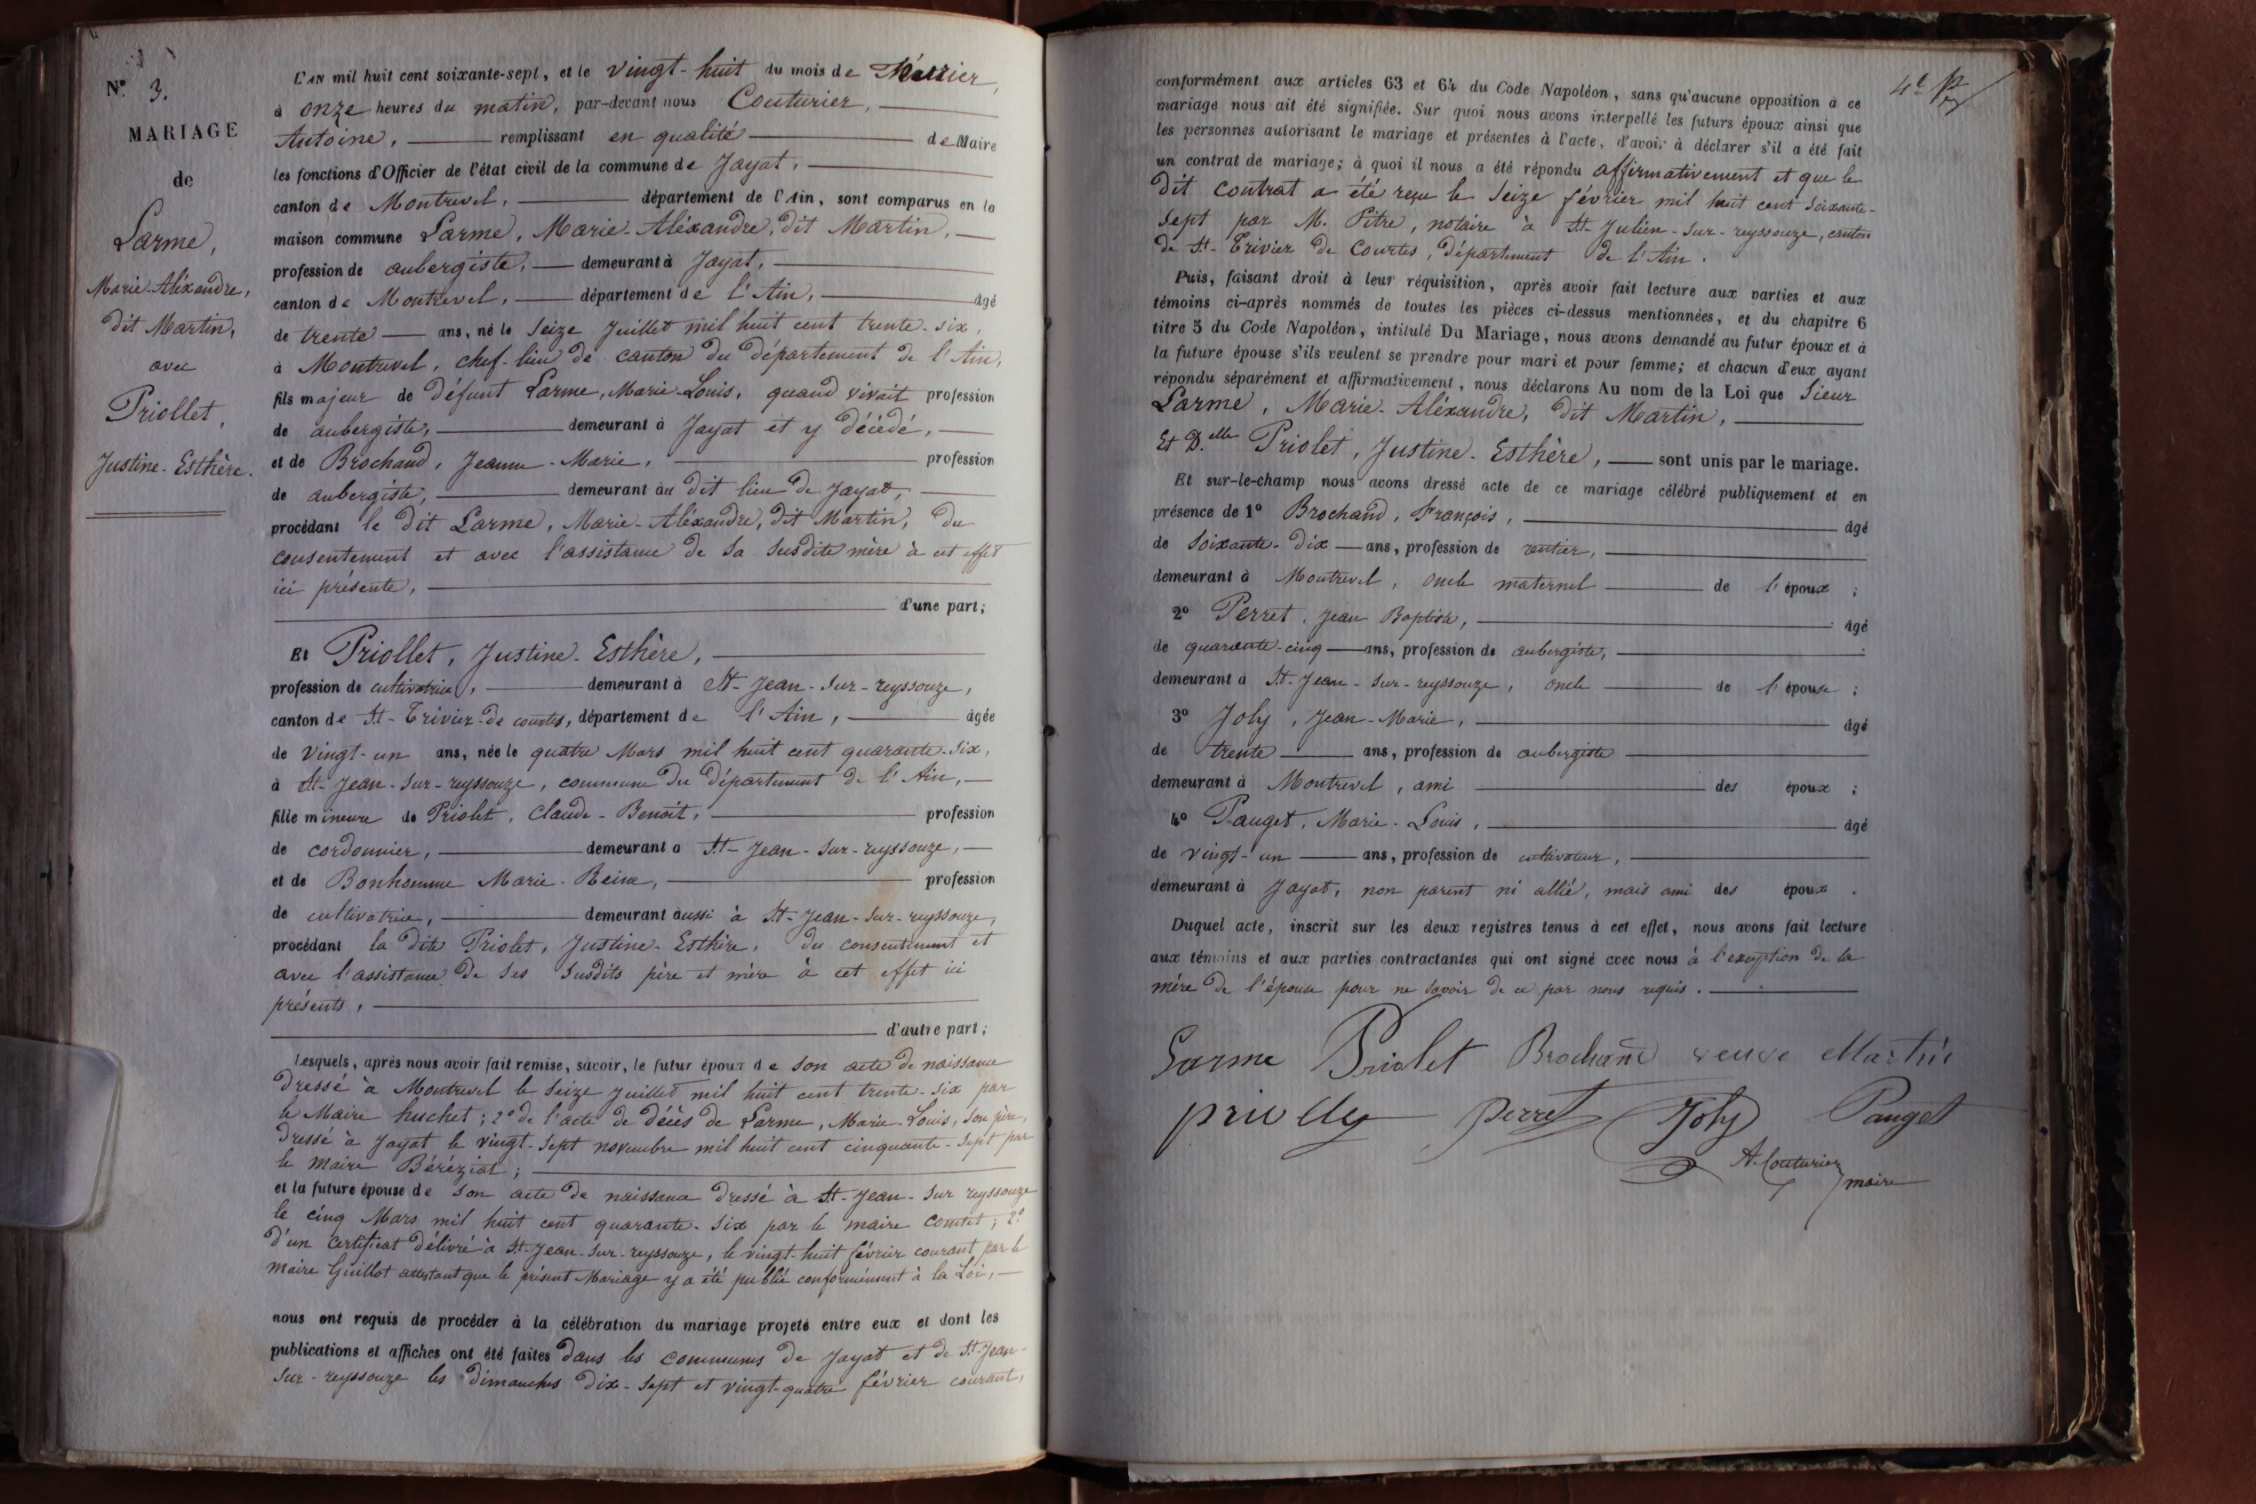 Nº 3.
MARIAGE
de
Larme,
Marie-Aléxandre,
dit Martin,
avec
Priollet,
Justine-Esthère.
L'AN mil huit cent soixante-sept, et le vingt-huit du mois de Février,
à onze heures du matin, par-devant nous Couturier,
Antoine, remplissant en qualité de Maire
les fonctions d'Officier de l'état civil de la commune de Jayat,
canton de Montrevel, département de l'Ain, sont comparus en la
maison commune Larme, Marie-Aléxandre, dit Martin,
profession de aubergiste, demeurant à Jayat,
canton de Montrevel, département de l'Ain, âgé
de trente ans, né le seize Juillet mil huit cent trente-six,
à Montrevel, chef-lieu de canton du département de l'Ain,
fils majeur de défunt Larme, Marie-Louis, quand vivait profession
de aubergiste, demeurant à Jayat et y décédé,
et de Brochand, Jeanne-Marie, profession
de aubergiste, demeurant au dit lieu de Jayat,
procédant le dit Larme, Marie-Aléxandre, dit Martin, du
consentement et avec l'assistance de sa susdite mère à cet effet
ici présente,
d'une part;
Et Priollet, Justine-Esthère,
profession de cultivatrice, demeurant à St-Jean-sur-reyssouze,
canton de St-Trivier-de courtes, département de l'Ain, âgée
de vingt-un ans, née le quatre Mars mil huit cent quarante-six,
à St-Jean-sur-reyssouze, commune du département de l'Ain,
fille mineure de Priolet, Claude-Benoît, profession
de cordonnier, demeurant a St-Jean-sur-reyssouze,
et de Bonhomme Marie-Reine, profession
de cultivatrice, demeurant aussi à St-Jean-sur-reyssouze,
procédant la dite Priolet, Justine-Esthère, du consentement et
avec l'assistance de ses susdits père et mère à cet effet ici
présents,
d'autre part;
Lesquels, après nous avoir fait remise, savoir, le futur époux de son acte de naissance
dressé à Montrevel le seize Juillet mil huit cent trente-six par
le Maire huchet; 2º de l'acte de décès de Larme, Marie-Louis, son père,
dressé à Jayat le vingt-sept novembre mil huit cent cinquante-sept par
le Maire Béréziat;
et la future épouse de son acte de naissance dressé à St-Jean-sur reyssouze
le cinq Mars mil huit cent quarante-six par le maire Comtet; 2º
d'un certificat délivré à St-Jean-sur-reyssouze, le vingt-huit février courant par le
maire Guillot attestant que le présent Mariage y a été publié conformément à la Loi,
nous ont requis de procéder à la célébration du mariage projeté entre eux et dont les
publications et affiches ont été faites dans les communes de Jayat et de St-Jean-
sur-reyssouze les dimanches dix-sept et vingt-quatre février courant,
conformément aux articles 63 et 64 du Code Napoléon, sans qu'aucune opposition à ce
mariage nous ait été signifiée. Sur quoi nous avons interpellé les futurs époux ainsi que
les personnes autorisant le mariage et présentes à l'acte, d'avoir à déclarer s'il a été fait
un contrat de mariage; à quoi il nous a été répondu affirmativement et que le
dit contrat a été reçu le seize février mil huit cent soixante-
sept par M. Pitre, notaire à St-Julien-sur-reyssouze, canton
de St-Trivier de Courtes, département de l'Ain.
Puis, faisant droit à leur réquisition, après avoir fait lecture aux parties et aux
témoins ci-après nommés de toutes les pièces ci-dessus mentionnées, et du chapitre 6
titre 5 du Code Napoléon, intitulé Du Mariage, nous avons demandé au futur époux et à
la future épouse s'ils veulent se prendre pour mari et pour femme; et chacun d'eux ayant
répondu séparément et affirmativement, nous déclarons Au nom de la Loi que Sieur
Larme, Marie-Aléxandre, dit Martin,
Et D.elle Priolet, Justine-Esthère, sont unis par le mariage.
Et sur-le-champ nous avons dressé acte de ce mariage célébré publiquement et en
présence de 1º Brochand, François, âgé
de soixante-dix ans, profession de rentier,
demeurant à Montrevel, oncle maternel de l'époux;
2º Perret, Jean Baptiste, âgé
de quarante-cinq ans, profession de aubergiste,
demeurant à St-Jean-sur-reyssouze, oncle de l'épouse;
3º Joly, Jean-Marie, âgé
de trente ans, profession de aubergiste
demeurant à Montrevel, ami des époux;
4º Pauget, Marie-Louis, âgé
de vingt-un ans, profession de cultivateur,
demeurant à Jayat, non parent ni allié, mais ami des époux.
Duquel acte, inscrit sur les deux registres tenus à cet effet, nous avons fait lecture
aux témoins et aux parties contractantes qui ont signé avec nous à l'exception de la
mère de l'épouse pour ne savoir de ce par nous requis.
Larme Priolet Brochand veuve Martin
Perret Joly Pauget
A. Couturier
maire